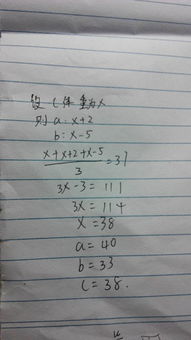 设C体重为x
则a:x+2
b:x-5
x+x+2+x-5/3=37
3x-3=111
3x=114
x=38
a=40
b=33
C=38.